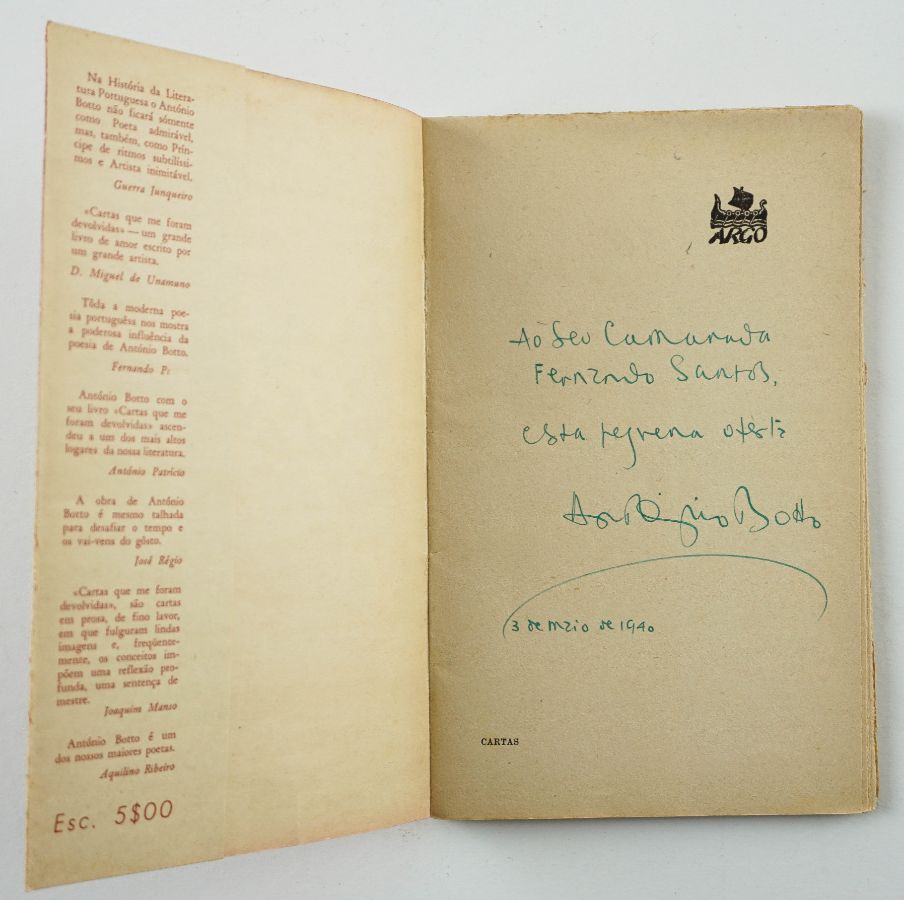 Na História da Litera-
tura Portuguesa o António
Botto não ficará sòmente
como Poeta admirável,
mas, também, como Prín-
cipe de ritmos subtilíssi-
mos e Artista inimitável.
Guerra Junqueiro
«Cartas que me foram
devolvidas» — um grande
livro de amor escrito por
um grande artista.
D. Miguel de Unamuno
Tôda a moderna poe-
sia portuguêsa nos mostra
a poderosa influência da
poesia de António Botto.
Fernando P
António Botto com o
seu livro «Cartas que me
foram devolvidas» ascen-
deu a um dos mais altos
logares da nossa literatura.
António Patrício
A obra de António
Botto é mesmo talhada
para desafiar o tempo e
os vai-vens do gôsto.
José Régio
«Cartas que me foram
devolvidas», são cartas
em prosa, de fino lavor,
em que fulguram lindas
imagens e, freqüente-
mente, os conceitos im-
põem uma reflexão pro-
funda, uma sentença de
mestre.
Joaquim Manso
António Botto é um
dos nossos maiores poetas.
Aquilino Ribeiro
Esc. 5$00
ARGO
Ao seu Camarada
Fernando Santos,
esta pequena oferta
António Botto
3 de maio de 1940
CARTAS